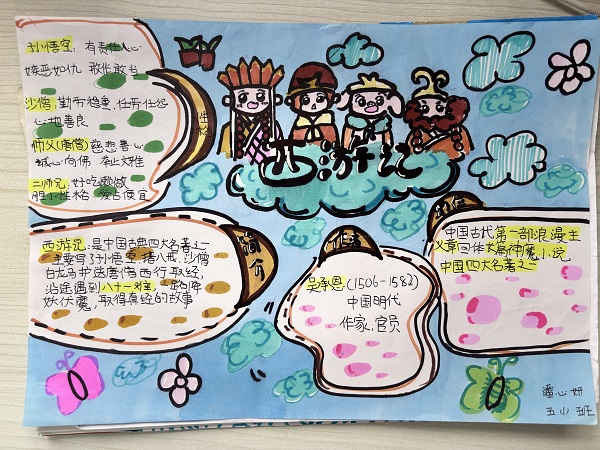 孙悟空：有责任心
嫉恶如仇 敢作敢当
沙僧 勤劳稳重，任劳任怨
心地善良
师父(唐僧)慈悲善
诚心向佛 举止文雅
二师兄：好吃懒做
胆小性格 爱占便宜
性格
西游记
西游记：是中国古典四大名著之一
主要写了孙悟空 猪八戒，沙僧
白龙马护送唐僧西行取经，
沿途遇到八十一难，一路降
妖伏魔，取得真经的故事
简介
作者
吴承恩(1506-1582)
中国明代
作家，官员
中国古代第一部浪漫主
义章回体长篇神魔小说
中国四大名著之一
潘心妍
五小班